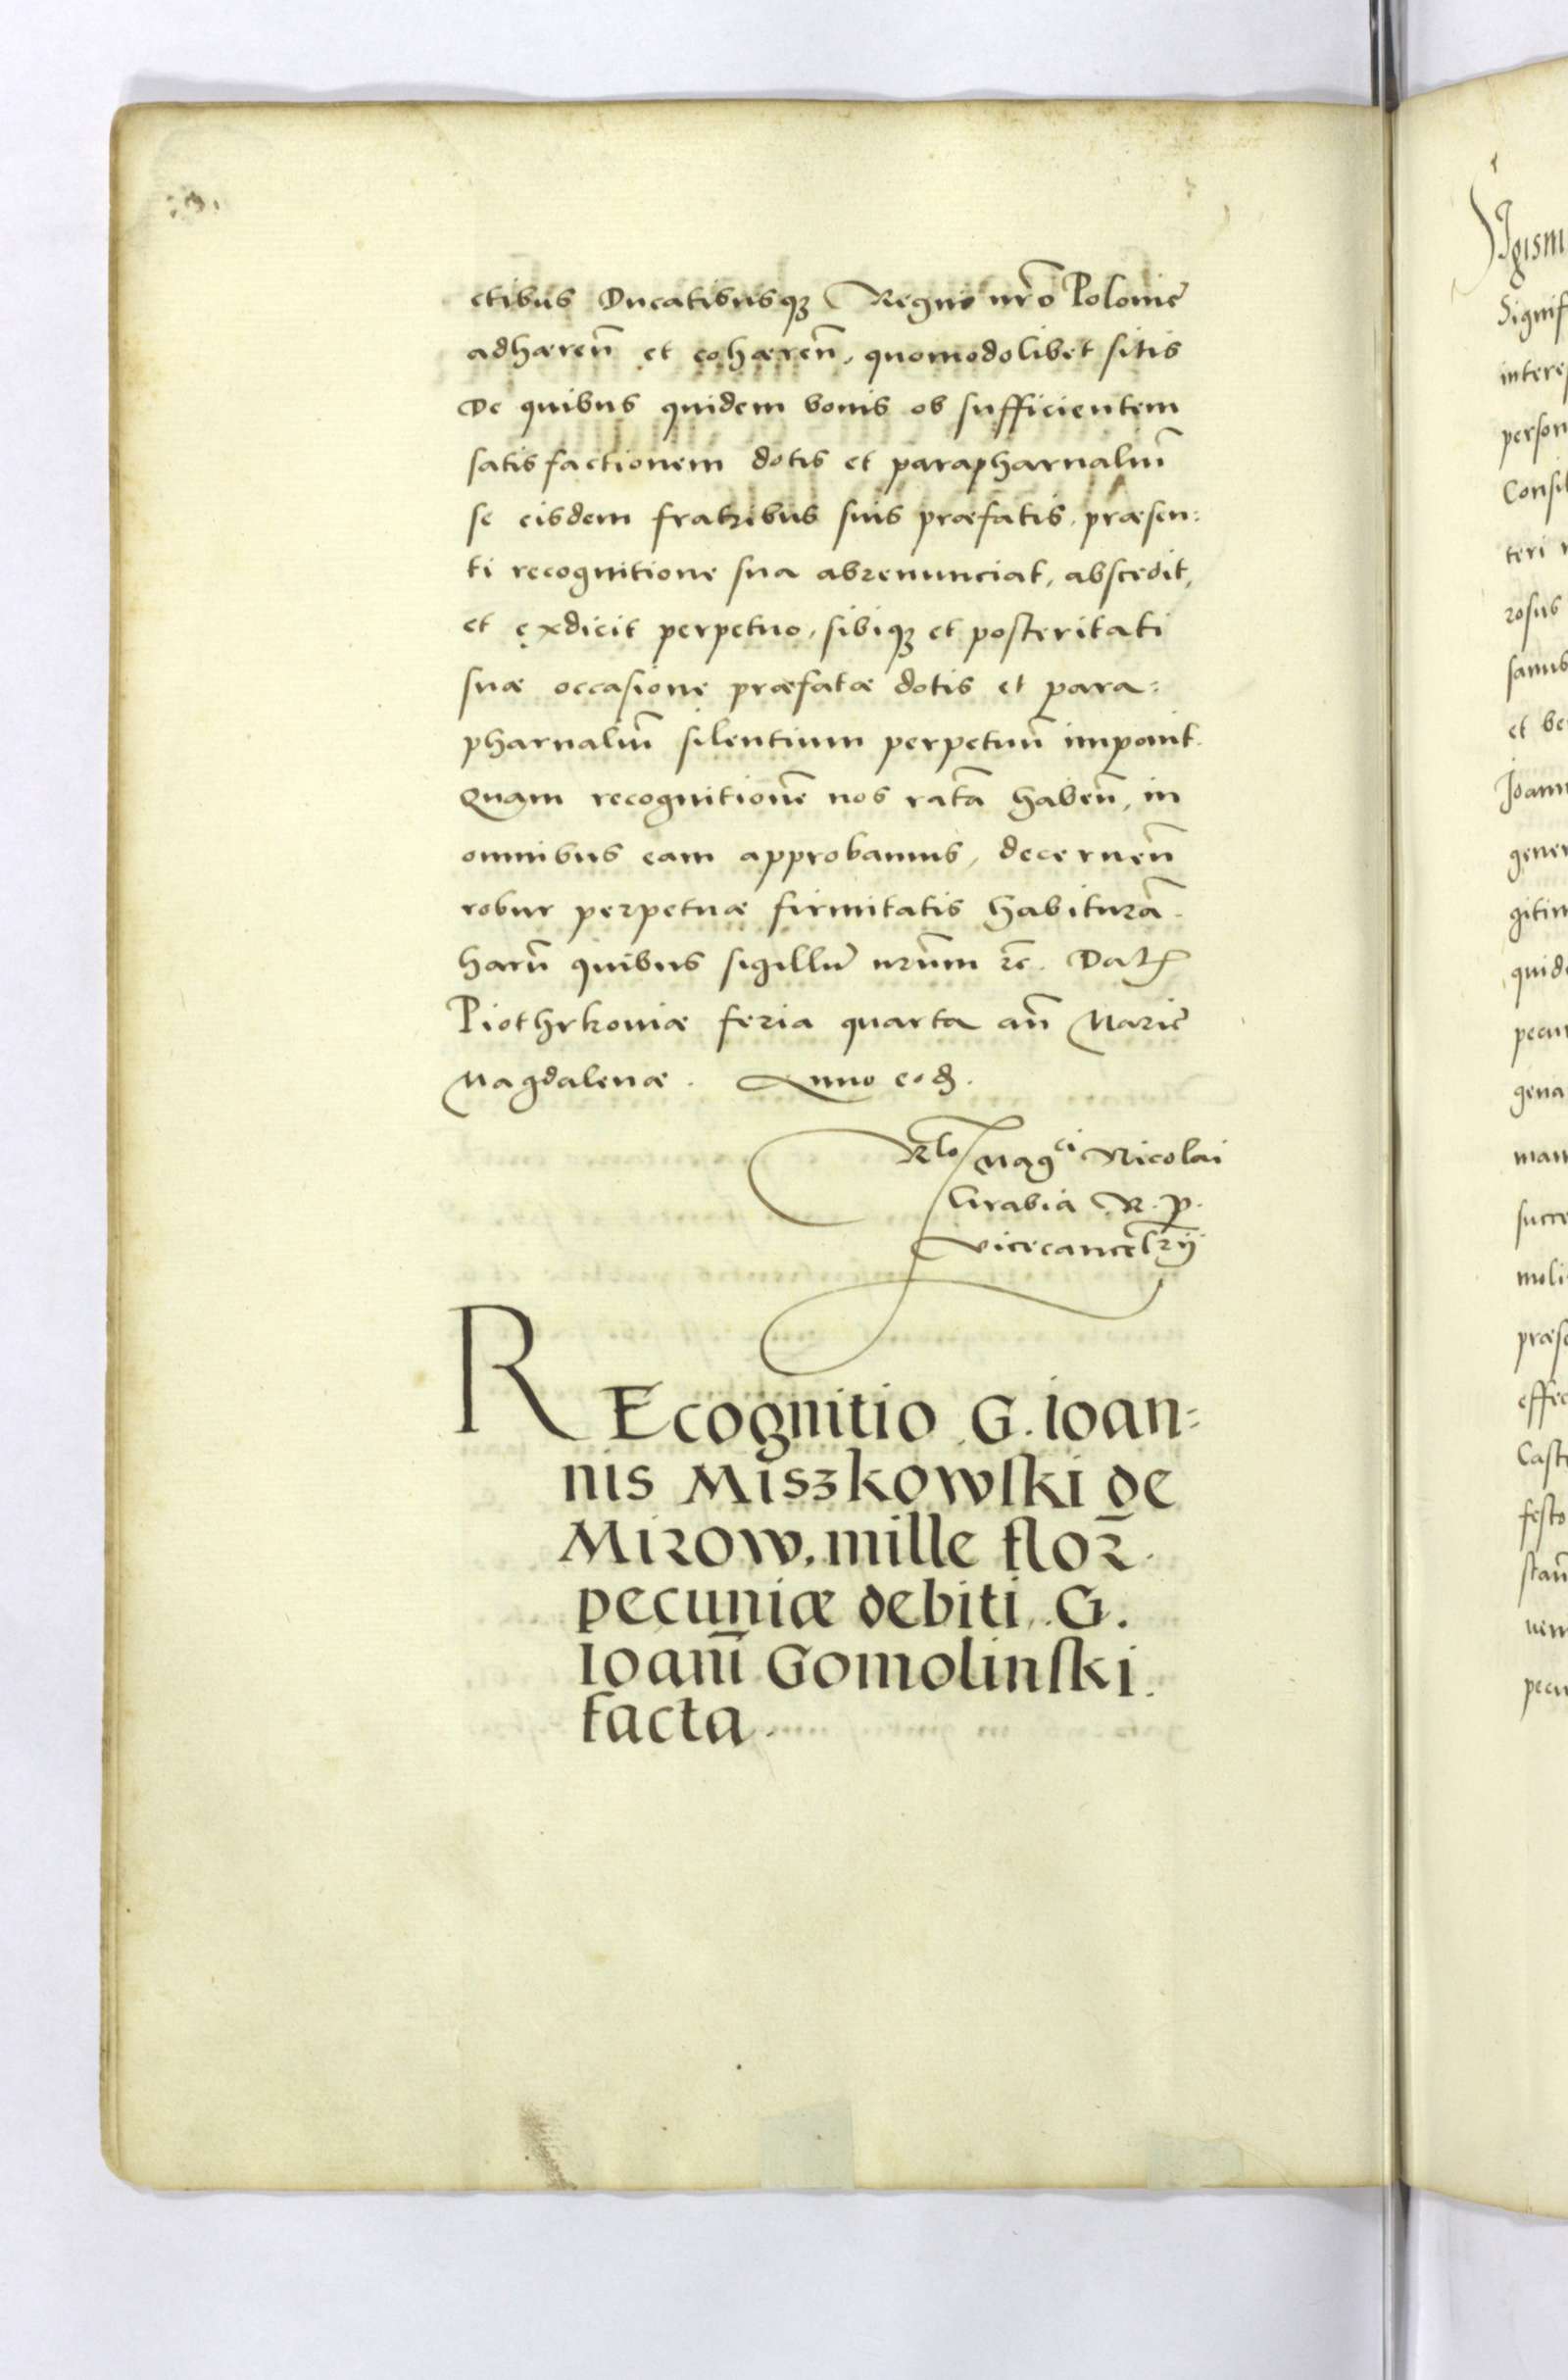 ctibus Ducatibusq₃ Regno nrō Poloniē
adhæreñ et cohæreñ, quomodolibet sitis
De quibus quidem bonis ob sufficientem
satisfactionem dotis et parapharnaliū
se eisdem fratribus suis præfatis, præsen:
ti recognitione sua abrenunciat, abscedit,
et exdicit perpetuo, sibiq₃ et posteritati
suæ occasione præfatæ dotis et para:
pharnaliū silentium perpetuū imponit.
Quam recognitionē nos ratā habeñ, in
omnibus eam approbamus, decerneñ
robur perpetuæ firmitatis habiturā.
harū quibus sigillū nrūm ꝛc. Datꝭ
Piothrkoviæ feria quarta añ Mariē
Magdalenæ. Anno eod.
Rlo Magci Nicolai
Grabia R. P.
vicecancelrij
REcognitio G. ioan:
nis Miszkowski de
Mirow, mille flor̄.
pecuniæ debiti, G.
Ioanī Gomolinski.
facta.
Sigism
Signif
interes
person
Consil
teri
rosus
samus
et be
Joann
gener
gitim
quide
pecun
gena
man
succe
moli
præse
effec
Cast
festo
stañ
pecu